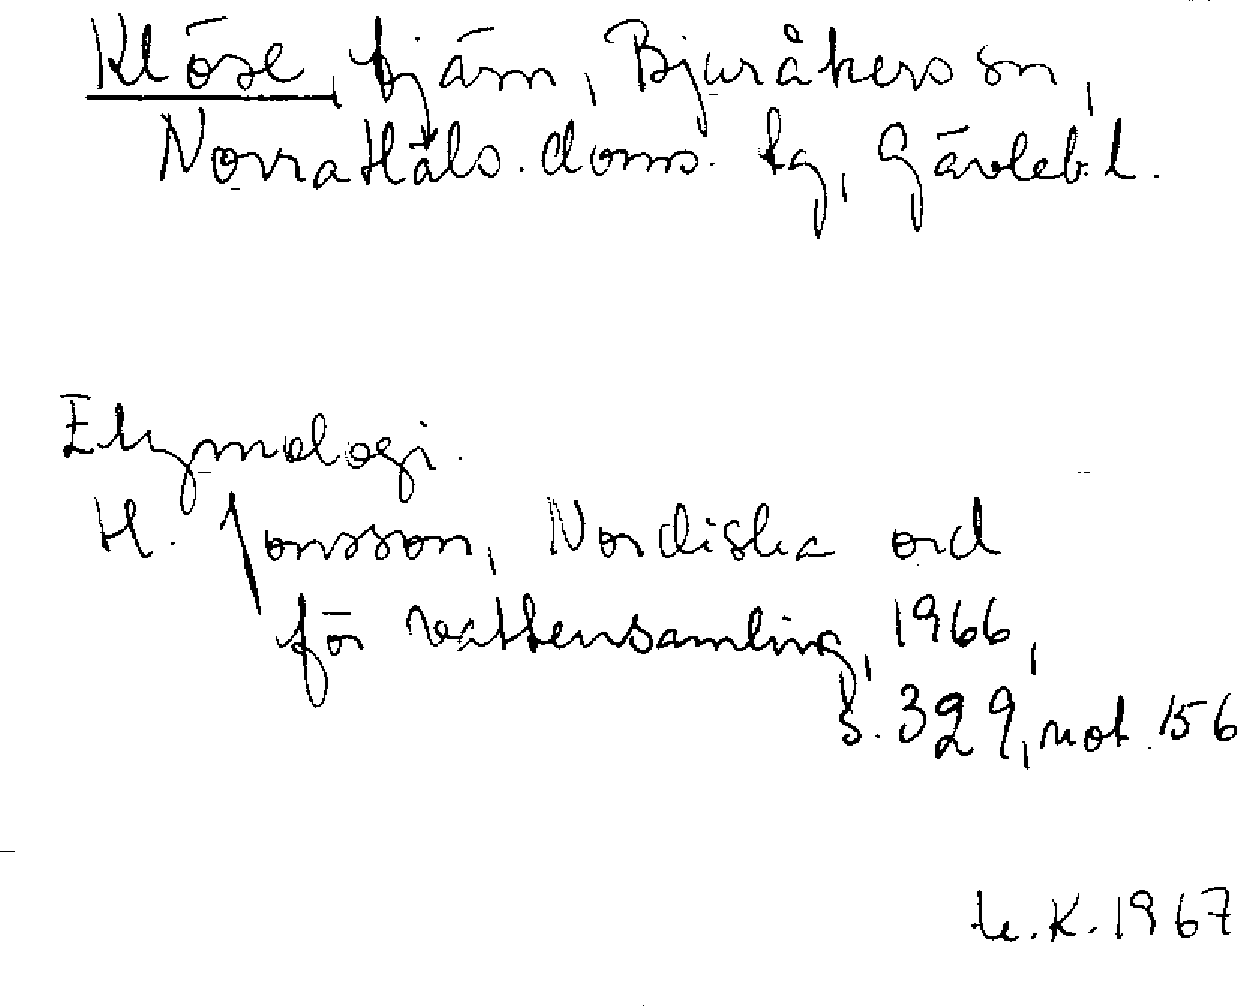 Klöse, tjärn, Bjuråkers sn,
Norra Häls. doms. tg, Gävleb. l.
Etymologi.
H. Jonsson, Nordiska ord
för vattensamling, 1966,
s. 329, not 156
K. 1967